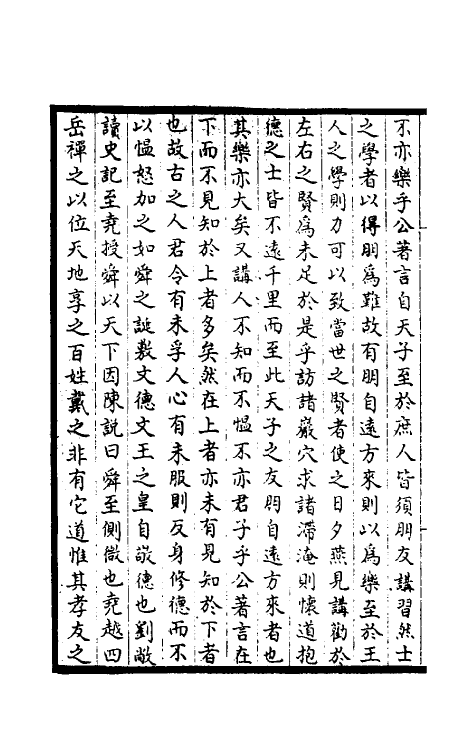 不亦樂乎公著言自天子至於庶人皆須朋友講習然士
之學者以得朋爲難故有朋自逺方來則以爲樂至於王
人之學則力可以致當世之賢者使之日夕燕見講勸於
左右之賢爲未足於是乎訪諸巖穴求諸滯淹則懷道抱
德之士皆不逺千里而至此天子之友朋自逺方來者也
其樂亦大矣又講人不知而不愠不亦君子乎公著言在
下而不見知於上者多矣然在上者亦未有見知於下者
也故古之人君令有未孚人心有未服則反身修德而不
以愠怒加之如舜之誕敷文德文王之皇自敬德也劉敞
讀史記至堯授舜以天下因陳說曰舜至側微也堯越四
岳禪之以位天地享之百姓戴之非有它道惟其孝友之